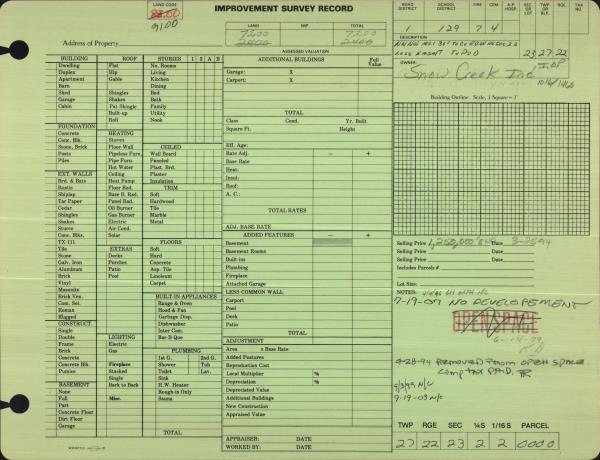 LAND CODE
9100
IMPROVEMENT SURVEY RECORD
LAND IMP. TOTAL
7200 7200
2400 2400
ASSESSED VALUATION
Address of Property
ROAD DISTRICT SCHOOL DISTRICT FIRE CEM. A.P. HOSP. SEC OR LOT TWP OR BLK.
1 129 7 4
DESCRIPTION
23 27 22
OWNER:
Snow Creek Inc
BUILDING ROOF STORIES 1 2 A B
Dwelling Flat No. Rooms
Duplex Hip Living
Apartment Gable Kitchen
Barn Dining
Shed Shingles Bed
Garage Shakes Bath
Cabin Pat. Shingle Family
Built-up Utility
Roll Nook
FOUNDATION
Concrete HEATING
Conc. Blk. Stoves CEILED
Stone, Brick Floor-Wall Wall Board
Posts Pipeless Furn. Paneled
Piles Pipe Furn. Plast. Brd.
Hot Water Plaster
EXT. WALLS Ceiling Insulation
Brd. & Bats Heat Pump TRIM
Rustic Floor Rad. Soft
Shiplap Base B. Rad. Hardwood
Tar Paper Panel Rad. Tile
Cedar Oil Burner Marble
Shingles Gas Burner Metal
Shakes Electric
Stucco Air Cond.
Conc. Blks. Solar
TX-111 FLOORS
Tile EXTRAS Soft
Stone Decks Hard
Galv. Iron Porches Concrete
Aluminum Patio Asp. Tile
Brick Pool Linoleum
Vinyl Carpet
Masonite
Brick Ven. BUILT-IN APPLIANCES
Com. Sel. Range & Oven
Roman Hood & Fan
Rigged Garbage Disp.
CONSTRUCT. Dishwasher
Single Inter Com.
Double LIGHTING Bar-B-Que
Frame Electric
Brick Gas PLUMBING
Concrete 1st G. 2nd G.
Concrete Blk. Fireplace Shower Tub
Pumice Stacked Toilet Lav.
Single Sink
BASEMENT Back to Back H.W. Heater
None Rough-in Only
Full Misc. Sauna
Part
Concrete Floor
Dirt Floor
Garage
TOTAL
ADDITIONAL BUILDINGS Full Value
Garage: X
Carport: X
TOTAL
Class Cond. Yr. Built
Square Ft. Height
Eff. Age:
Rate Adj. − +
Base Rate
Heat:
Insul:
Roof:
A. C.:
TOTAL RATES
ADJ. BASE RATE
ADDED FEATURES − +
Basement
Basement Rooms
Built-ins
Plumbing
Fireplace
Attached Garage
LESS COMMON WALL
Carport
Pool
Deck
Patio
TOTAL
ADJUSTMENT
Area x Base Rate
Added Features
Reproduction Cost
Local Multiplier %
Depreciation %
Depreciated Value
Additional Buildings
New Construction
Appraised Value
APPRAISER: DATE
WORKED BY: DATE
Building Outline. Scale, 1 Square = 1'
Selling Price 1,250,000 Date 3-25-94
Selling Price Date
Selling Price Date
Includes Parcels #
Lot Size:
NOTES:
7-19-07 NO DEVELOPEMENT
OPEN SPACE
6-14-79
4-28-94 REMOVED FROM OPEN SPACE
Comp TAX PAID.
9/3/99 N/C
9-19-03 N/C
TWP RGE SEC ¼S 1/16 S PARCEL
27 22 23 2 2 0000